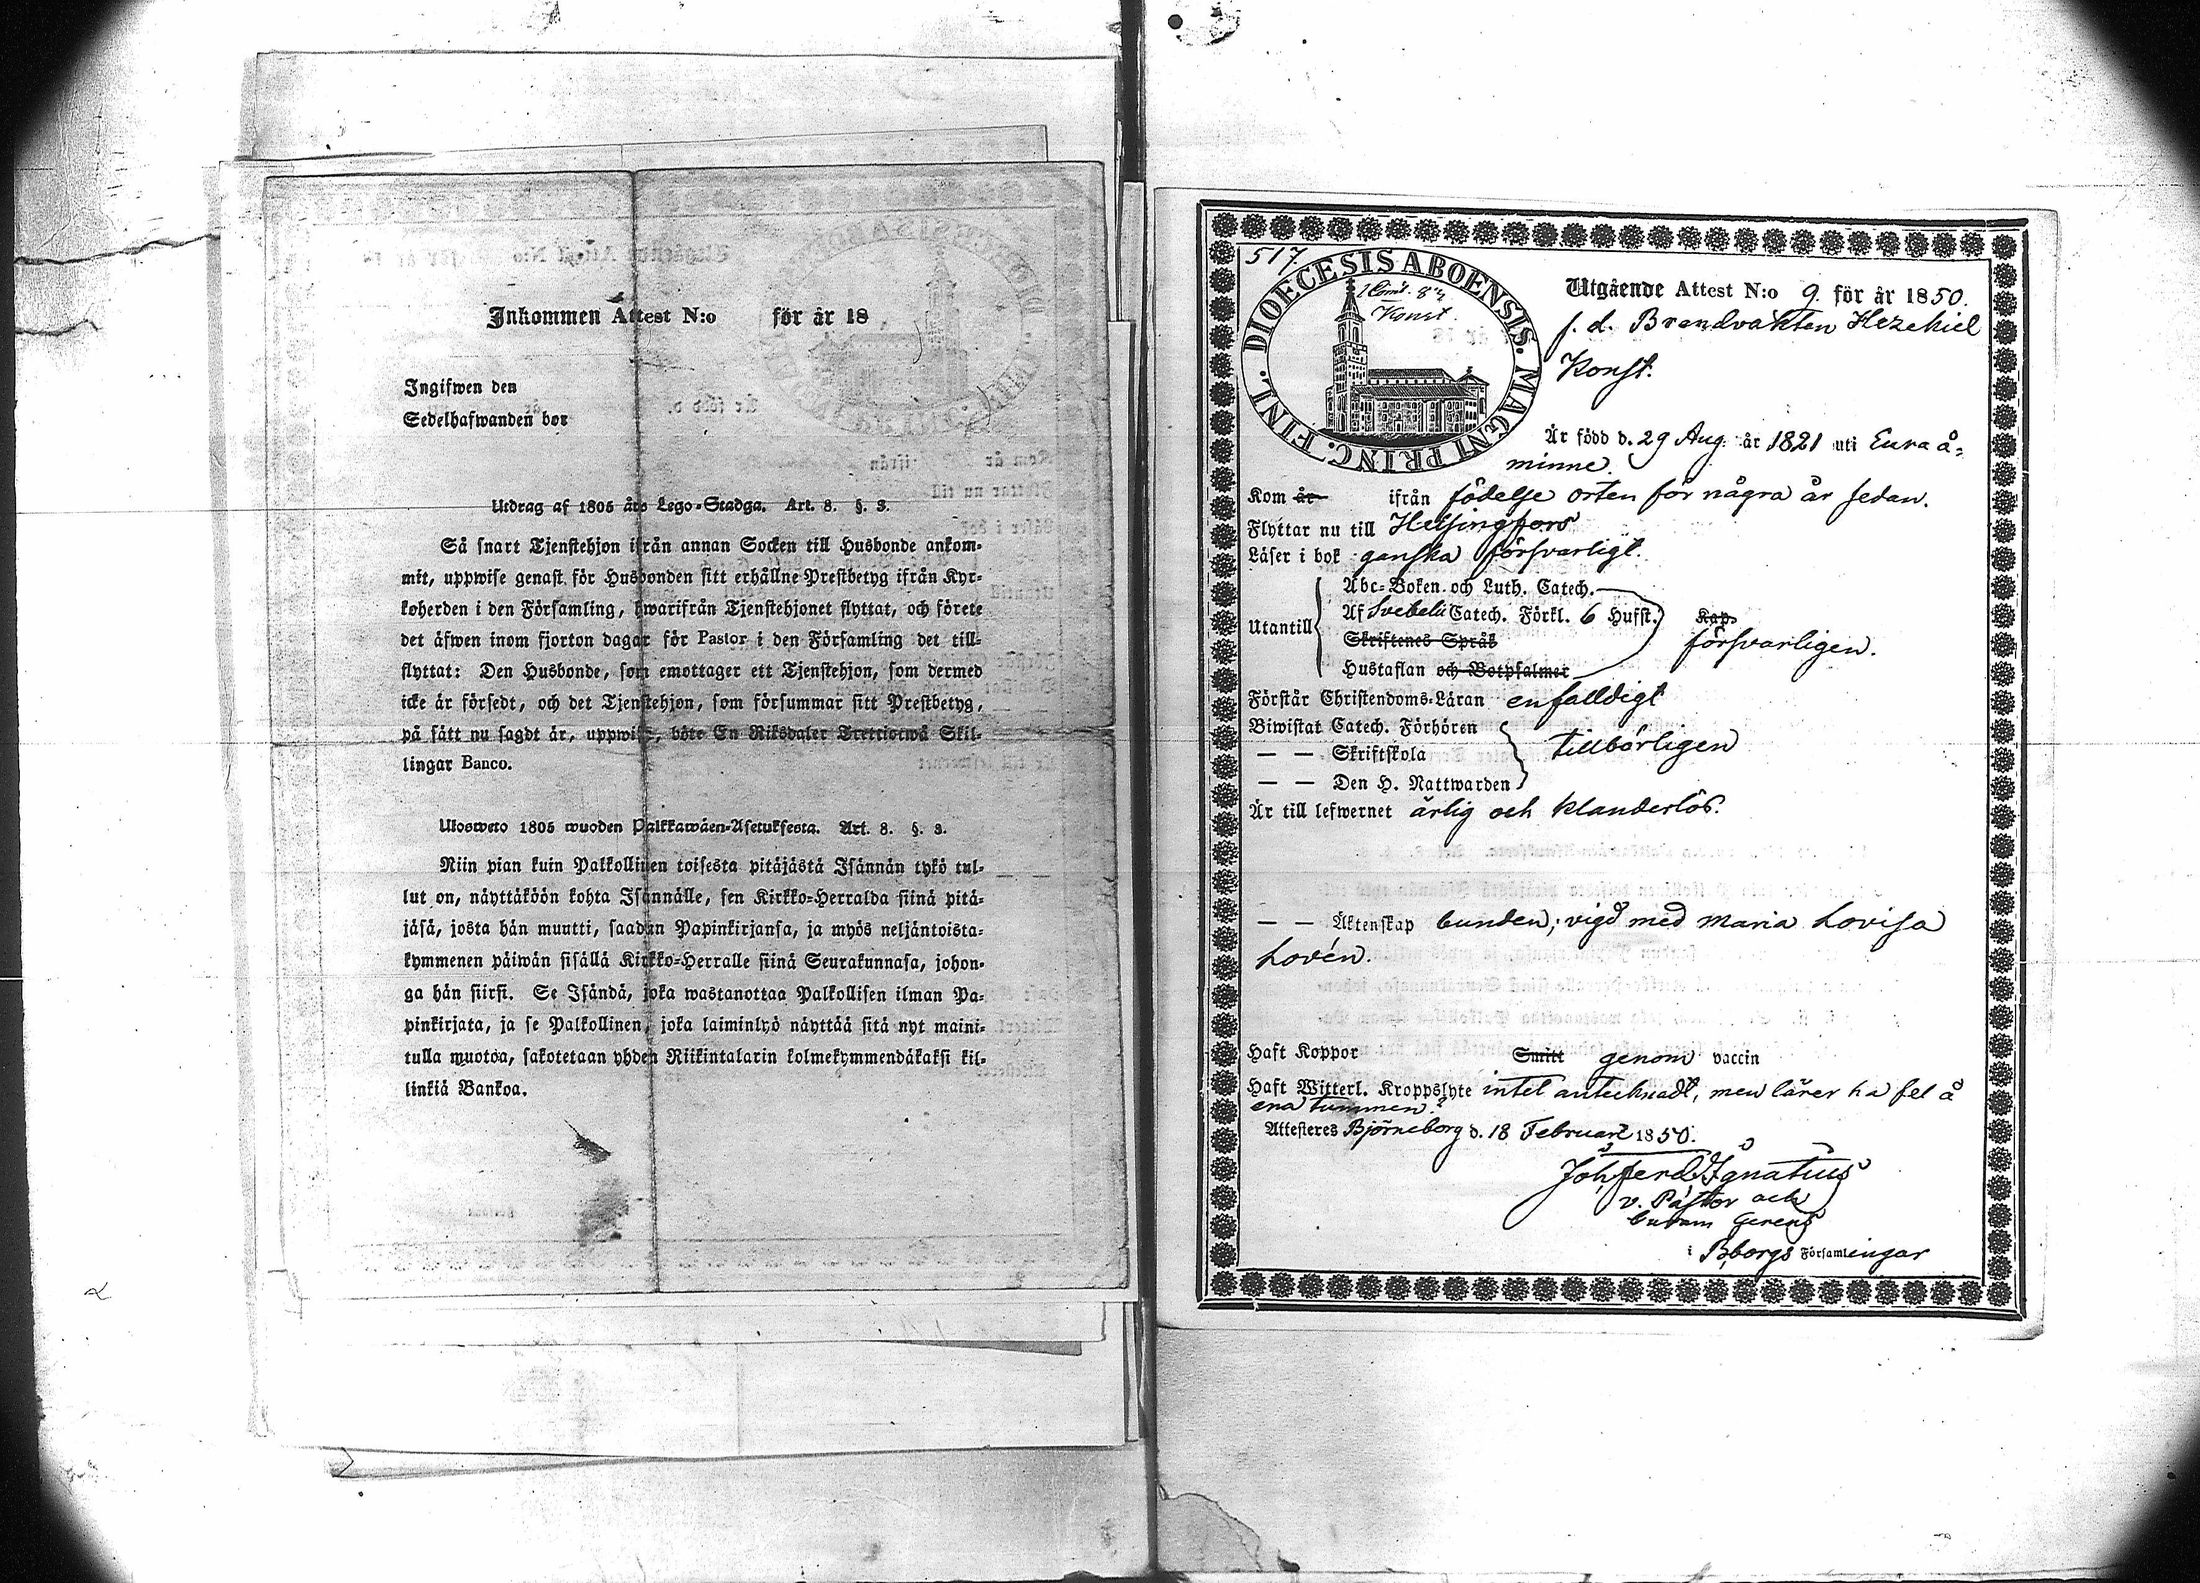 Inkommen Attest N:o för år 18
Ingifwen den
Sedelhafwanden bor
Utdrag af 1805 års Lego-Stadga. Art. 8. §. 3.
Så snart Tjenstehjon ifrån annan Socken till Husbonde ankom-
mit, uppwise genast för Husbonden sitt erhållne Prestbetyg ifrån Kyr-
koherden i den Församling, hwarifrån Tjenstehjonet flyttat, och förete
det äfwen inom fjorton dagar för Pastor i den Församling det till-
flyttat: Den Husbonde, som emottager ett Tjenstehjon, som dermed
icke är försedt, och det Tjenstehjon, som försummar sitt Prestbetyg,
på sätt nu sagdt är, uppwisa, böte En Riksdaler Trettiotwå Skil-
lingar Banco.
Ulosweto 1805 wuoden Palkkawäen-Asetuksesta. Art. 8. §. 3.
Niin pian kuin Palkollinen toisesta pitäjästä Isännän tykö tul-
lut on, näyttäköön kohta Isännälle, sen Kirkko-Herralda siinä pitä-
jäsä, josta hän muutti, saadun Papinkirjansa, ja myös neljäntoista-
kymmenen päiwän sisällä Kirkko-Herralle siinä Seurakunnasa, johon-
ga hän siirsi. Se Isändä, joka wastanottaa Palkollisen ilman Pa-
pinkirjata, ja se Palkollinen, joka laiminlyö näyttää sitä nyt maini-
tulla muotoa, sakotetaan yhden Riikintalarin kolmekymmendäkaksi kil-
linkiä Bankoa.
517.
DIOECESIS ABOENSIS. MAGNI PRINC. FINL.
Konst.
Utgående Attest N:o 9. för år 1850.
f. d. Brandvakten Hezekiel
Konst.
Är född d. 29 Aug. år 1821 uti Eura å-
minne.
Kom år ifrån födelse orten för några år sedan.
Flyttar nu till Helsingfors
Läser i bok ganska försvarligt.
Utantill
Abc-Boken och Luth. Catech.
Af Svebelii Catech. Förkl. 6 Hufst. Kap.
Skriftenes Språk försvarligen.
Hustaflan och Botpsalmer
Förstår Christendoms-Läran enfalldigt
Biwistat Catech. Förhören
— — Skriftskola tillbörligen
— — Den H. Nattwarden
Är till lefwernet ärlig och klanderlös.
— — Äktenskap bunden; vigd med Maria Lovisa
Lovén.
Haft Koppor Smitt genom vaccin
Haft Witterl. Kroppslyte intet antecknadt, men lärer ha fel å
ena tummen.
Attesteres Björneborg d. 18 Februari 1850.
Joh. Ferd. Ignatius
v. Pastor och
Curam Gerens
i B,borgs Församlingar